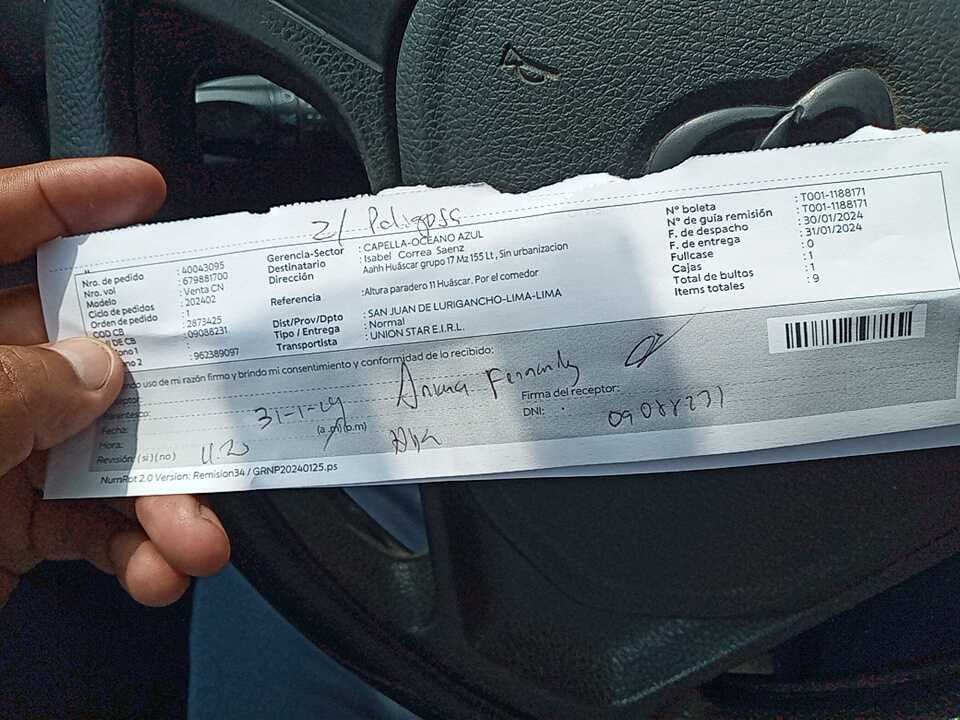 Nro. de pedido : 40043095
Nro. vol : 679881700
Modelo : Venta CN
Ciclo de pedidos : 202402
Orden de pedido : 1
COD CB : 2873425
DE CB : 09088231
ono 1
no 2 : 962389097
Gerencia-Sector : CAPELLA-OCEANO AZUL
Destinatario : Isabel Correa Saenz
Dirección : Aahh Huáscar grupo 17 Mz 155 Lt , Sin urbanizacion
Referencia : Altura paradero 11 Huáscar. Por el comedor
Dist/Prov/Dpto : SAN JUAN DE LURIGANCHO-LIMA-LIMA
Tipo / Entrega : Normal
Transportista : UNION STAR E.I.R.L.
N° boleta : T001-1188171
N° de guía remisión : T001-1188171
F. de despacho : 30/01/2024
F. de entrega : 31/01/2024
Fullcase : 0
Cajas : 1
Total de bultos : 1
Items totales : 9
ndo uso de mi razón firmo y brindo mi consentimiento y conformidad de lo recibido:
eptor:
entesco:
Fecha: 31-1-24
Hora: (a.m)(p.m)
Revisión: (si)(no)
Firma del receptor:
DNI: 09088231
NumRot 2.0 Version: Remision34 / GRNP20240125.ps